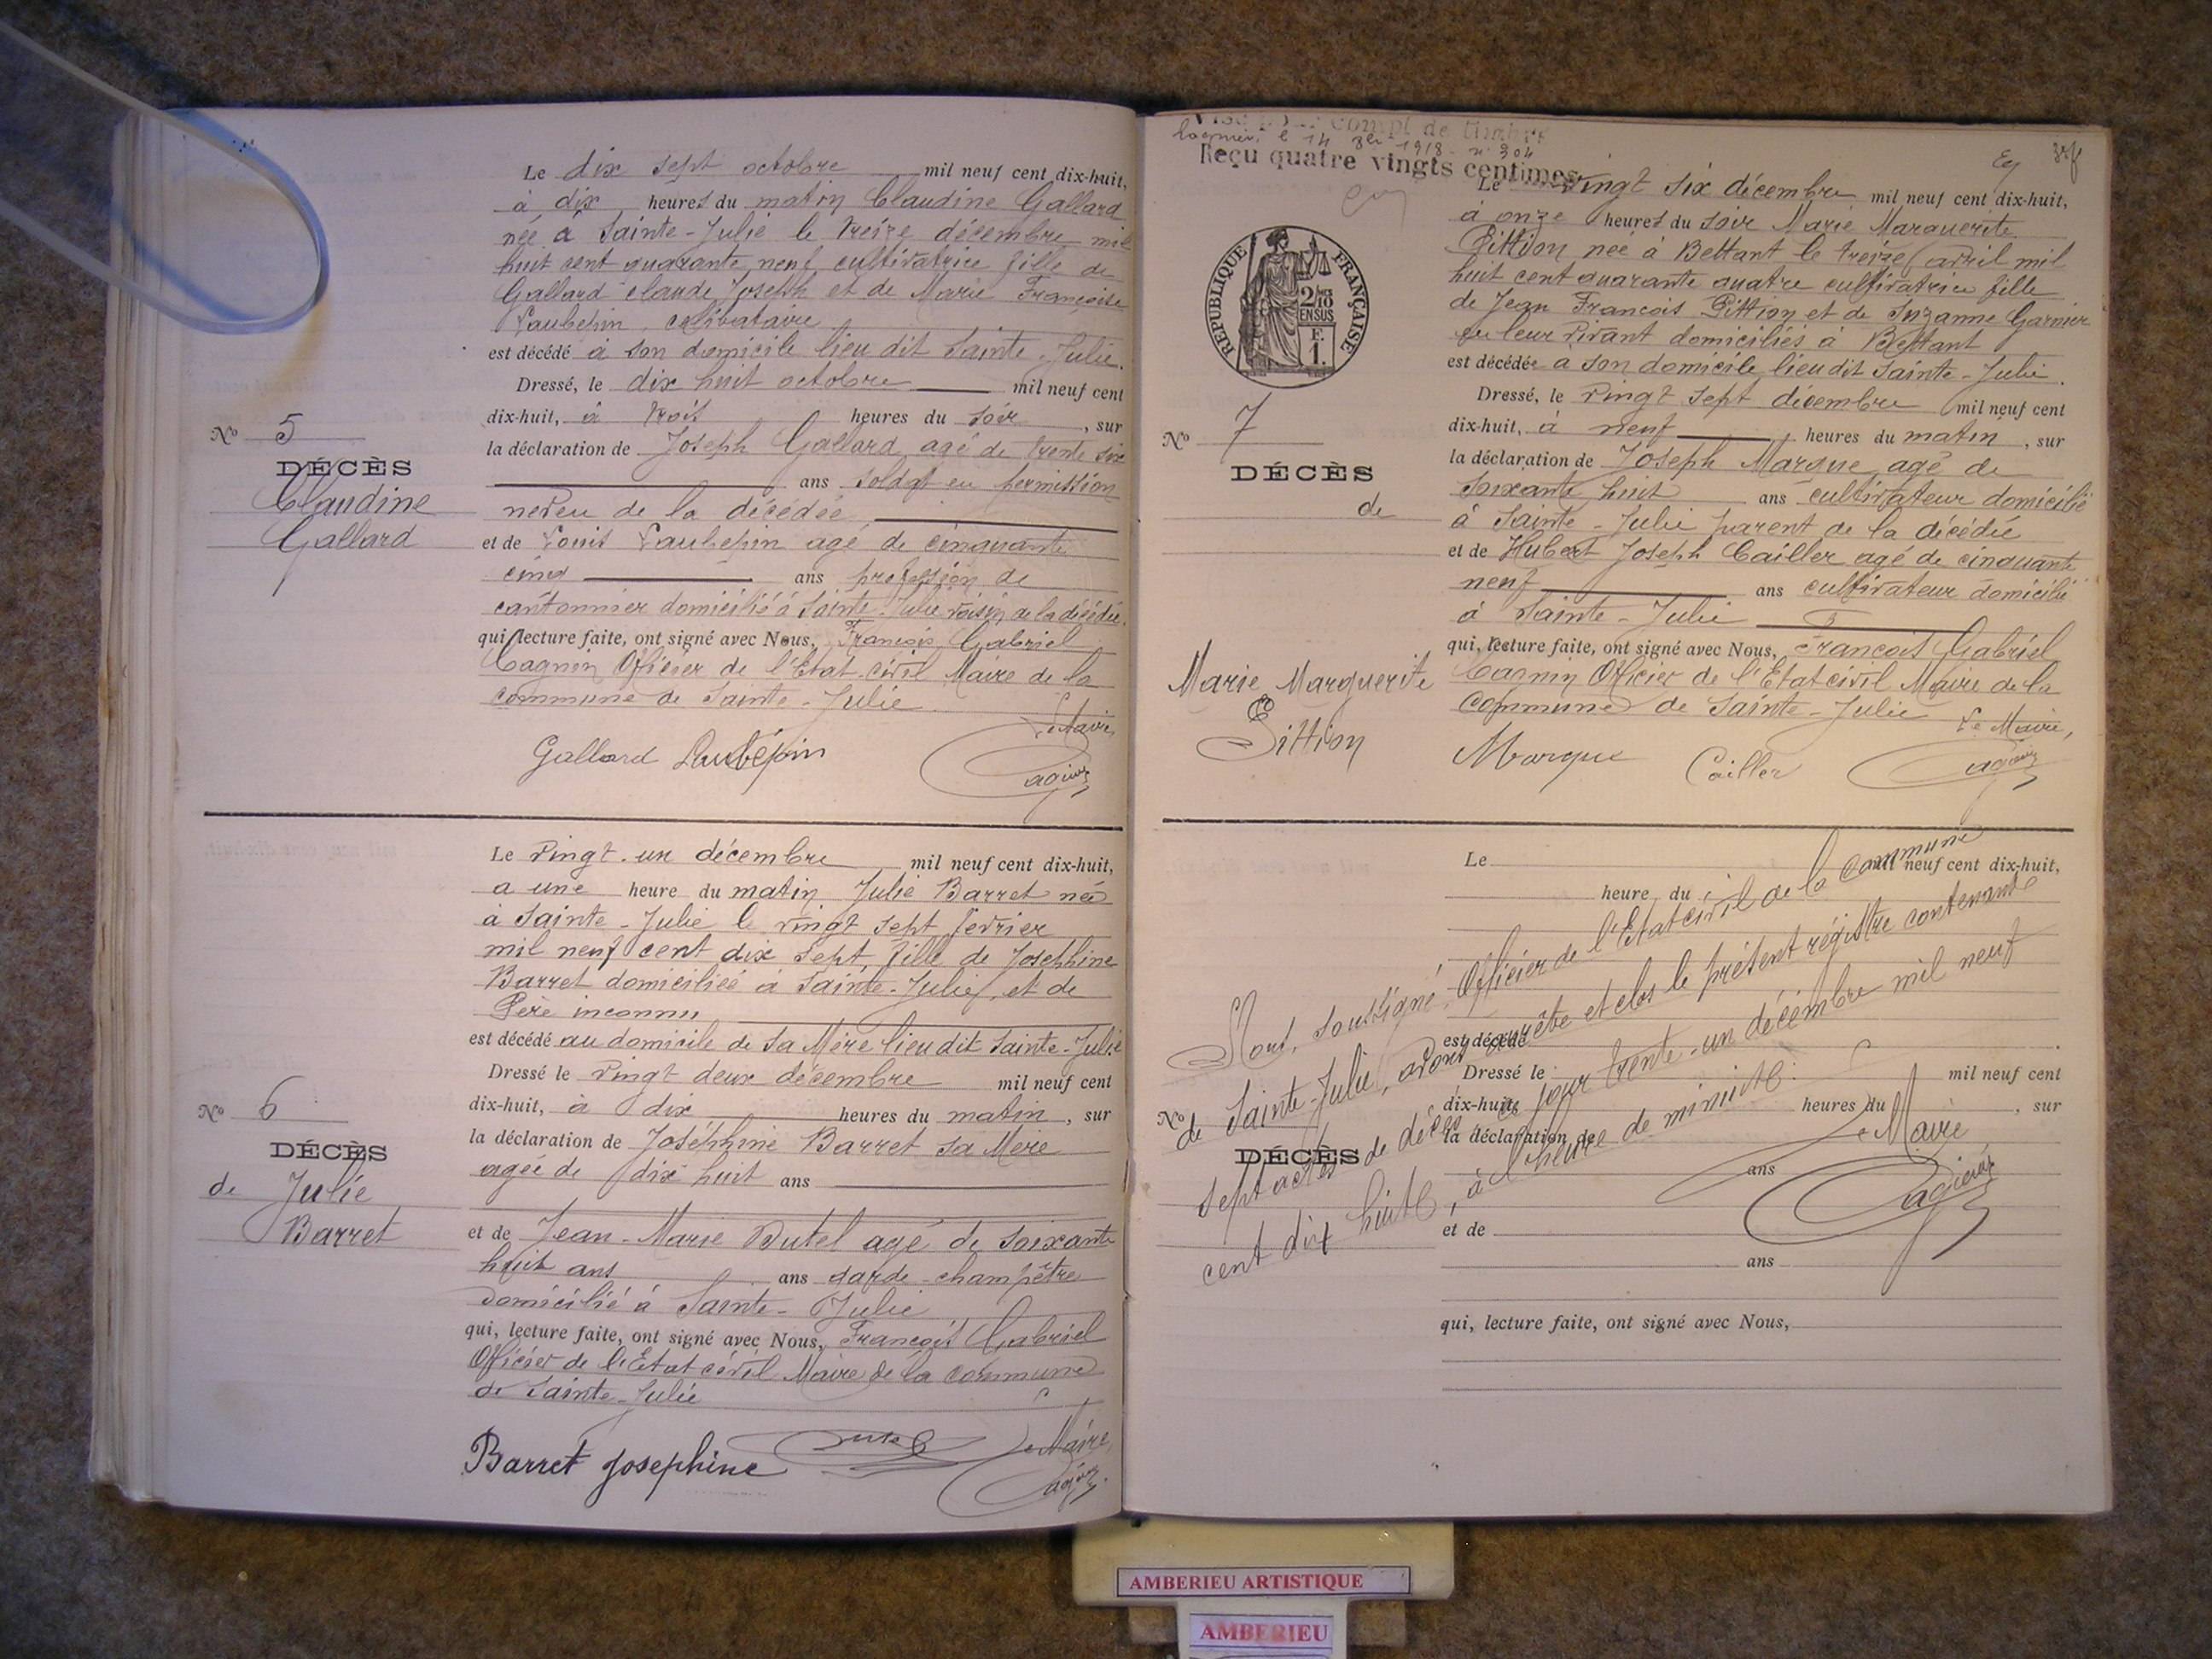 Le dix sept octobre mil neuf cent dix-huit,
à dix heures du matin Claudine Gallard
née à Sainte-Julie le treize décembre mil
huit cent quarante neuf cultivatrice fille de
Gallard Claude Joseph et de Marie Françoise
Laubepin, célibataire
est décédé à son domicile lieu dit Sainte-Julie.
Dressé, le dix huit octobre mil neuf cent
dix-huit, à trois heures du soir, sur
la déclaration de Joseph Gallard, agé de trente six
ans soldat en permission
neveu de la décédée
et de Louis Laubepin agé de cinquante
cinq ans profession de
cantonnier domicilié à Sainte-Julie voisin de la décédée.
qui lecture faite, ont signé avec Nous, François Gabriel
Cagnin Officier de l'Etat-civil Maire de la
commune de Sainte-Julie
Le Maire,
Gallard Laubépin
Nº 5
DÉCÈS
Claudine
Gallard
Le vingt-un décembre mil neuf cent dix-huit,
a une heure du matin Julie Barret née
à Sainte-Julie le vingt sept fevrier
mil neuf cent dix sept, fille de Joséphine
Barret domiciliée à Sainte-Julie, et de
Père inconnu
est décédé au domicile de sa Mère lieu dit Sainte-Julie
Dressé le vingt deux décembre mil neuf cent
dix-huit, à dix heures du matin, sur
la déclaration de Joséphine Barret sa Mère
agée de dix huit ans
et de Jean-Marie Dutel agé de soixante
huit ans ans garde-champêtre
domicilié à Sainte-Julie
qui, lecture faite, ont signé avec Nous, François Gabriel
Officier de l'Etat civil Maire de la commune
de Sainte-Julie
Le Maire,
Barret Josephine Dutel
Nº 6
DÉCÈS
de Julie
Barret
compl de timbre
le 14 1918 nº 304
Reçu quatre vingts centimes
RÉPUBLIQUE FRANÇAISE
2/10
EN SUS
F.
1.
Le vingt six décembre mil neuf cent dix-huit,
à onze heures du soir Marie Marguerite
Pittion née à Bettant le treize avril mil
huit cent quarante quatre cultivatrice fille
de Jean François Pittion et de Suzanne Garnier
en leur vivant domiciliés à Bettant
est décédée a son domicile lieu dit Sainte-Julie.
Dressé, le vingt sept décembre mil neuf cent
dix-huit, à neuf heures du matin, sur
la déclaration de Joseph Marque agé de
soixante huit ans cultivateur domicilié
à Sainte-Julie parent de la décédée
et de Hubert Joseph Cailler agé de cinquante
neuf ans cultivateur domicilié
à Sainte-Julie
qui, lecture faite, ont signé avec Nous, François Gabriel
Cagnin Officier de l'Etat civil Maire de la
Commune de Sainte-Julie
Le Maire,
Marque Cailler
Nº 7
DÉCÈS
de
Marie Marguerite
Pittion
Le mil neuf cent dix-huit,
heure du
est décédé
Dressé le mil neuf cent
dix-huit, heures du, sur
la déclaration de
ans
et de
ans
qui, lecture faite, ont signé avec Nous,
Nº
DÉCÈS
Nous, soussigné, Officier de l'Etat civil de la Commune
de Sainte-Julie, avons arrêté et clos le présent régistre contenant
sept actes de décès ce jour trente-un décembre mil neuf
cent dix huit, à l'heure de minuit.
Le Maire
AMBERIEU ARTISTIQUE
AMBERIEU